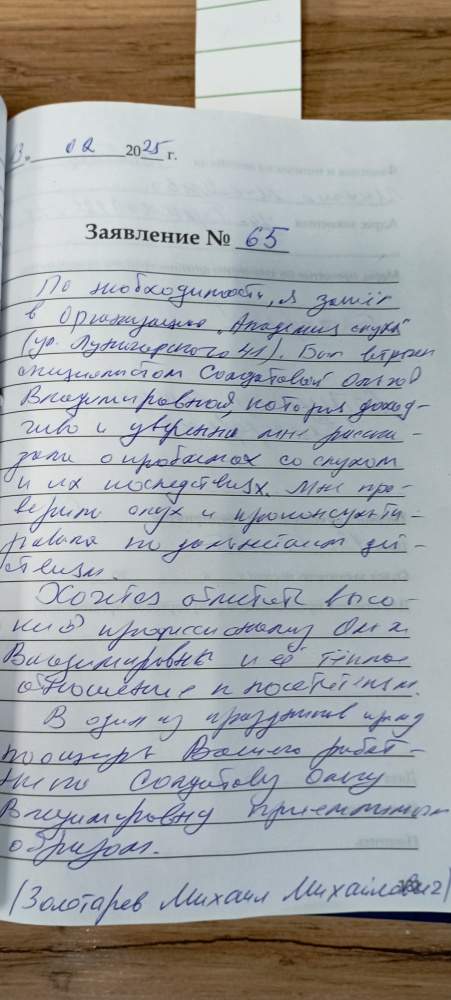 3. 02 2025 г.
Заявление № 65
По необходимости, я зашёл
в организацию "Академия слуха"
(ул. 41). Был встречен
специалистом Солдатовой Ольгой
Владимировной, которая доход-
чиво и уверенно мне расска-
зала о проблемах со слухом
и их последствиях. Мне про-
верили слух и проконсульти-
ровали по дальнейшим дей-
ствиям.
Хочется отметить высо-
кий профессионализм Ольги
Владимировны и её тёплое
отношение к посетителям.
В один из праздников прошу
поощрить Вашего работ-
ника Солдатову Ольгу
Владимировну приемлемым
образом.
/Золотарев Михаил Михайлович/